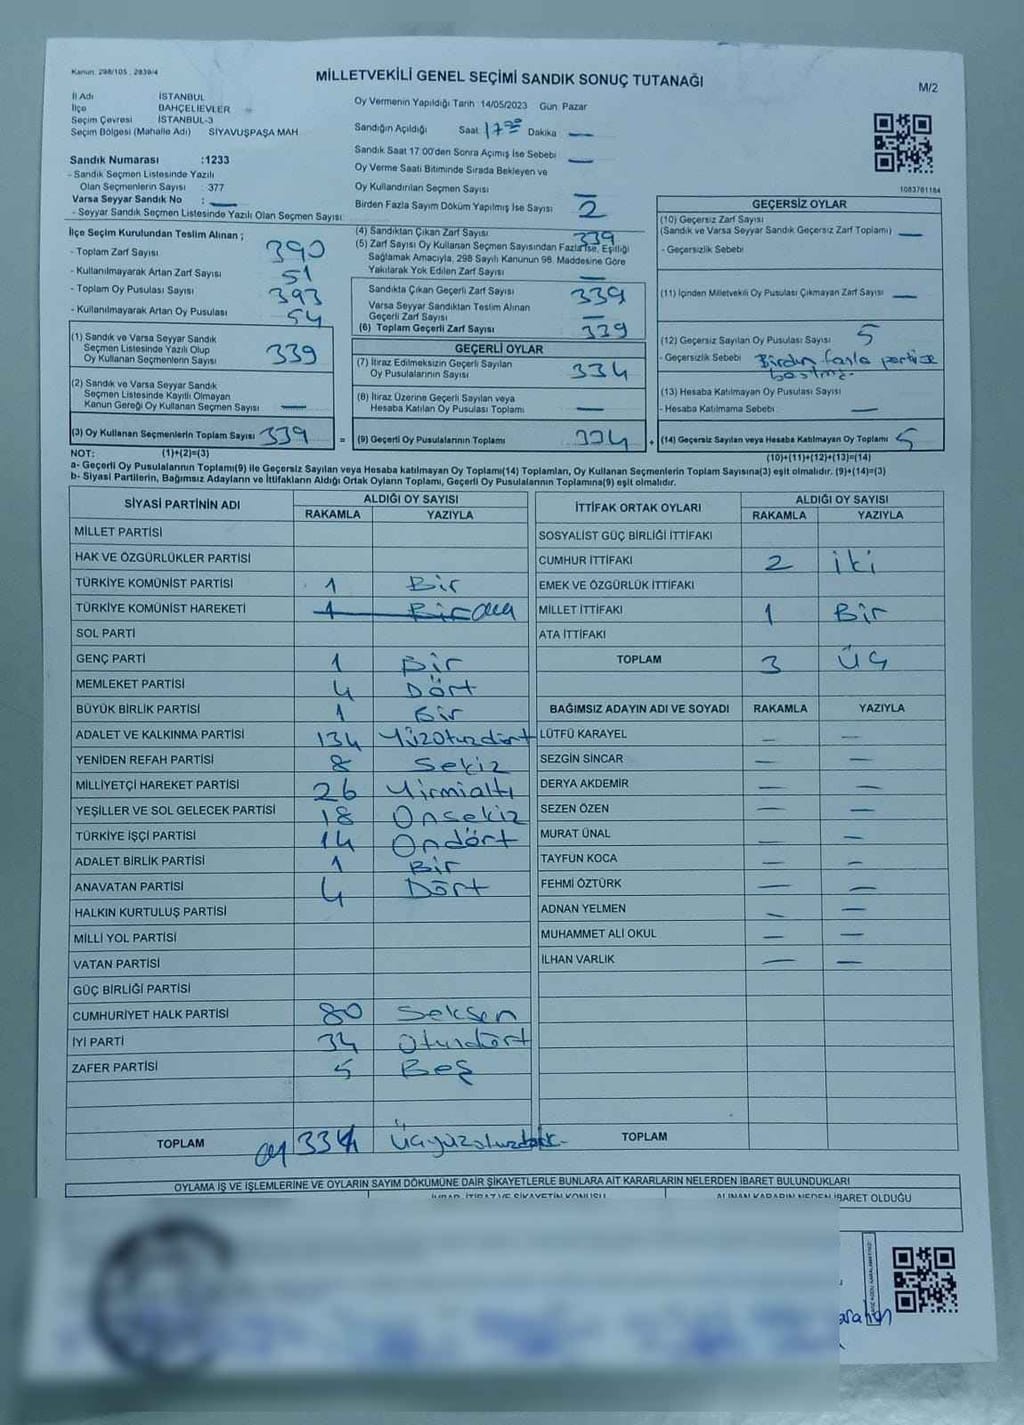 Kanun: 298/105, 2839/4
MİLLETVEKİLİ GENEL SEÇİMİ SANDIK SONUÇ TUTANAĞI
M/2
İl Adı İSTANBUL
İlçe BAHÇELİEVLER
Seçim Çevresi İSTANBUL-3
Seçim Bölgesi (Mahalle Adı) SİYAVUŞPAŞA MAH
Sandık Numarası :1233
- Sandık Seçmen Listesinde Yazılı
Olan Seçmenlerin Sayısı : 377
Varsa Seyyar Sandık No : —
- Seyyar Sandık Seçmen Listesinde Yazılı Olan Seçmen Sayısı:
Oy Vermenin Yapıldığı Tarih 14/05/2023 Gün Pazar
Sandığın Açıldığı Saat 17:00 Dakika —
Sandık Saat 17:00'den Sonra Açılmış İse Sebebi —
Oy Verme Saati Bitiminde Sırada Bekleyen ve
Oy Kullandırılan Seçmen Sayısı —
Birden Fazla Sayım Döküm Yapılmış İse Sayısı 2
1083761184
İlçe Seçim Kurulundan Teslim Alınan ;
- Toplam Zarf Sayısı 390
- Kullanılmayarak Artan Zarf Sayısı 51
- Toplam Oy Pusulası Sayısı 393
- Kullanılmayarak Artan Oy Pusulası 54
(1) Sandık ve Varsa Seyyar Sandık
Seçmen Listesinde Yazılı Olup
Oy Kullanan Seçmenlerin Sayısı 339
(2) Sandık ve Varsa Seyyar Sandık
Seçmen Listesinde Kayıtlı Olmayan
Kanun Gereği Oy Kullanan Seçmen Sayısı —
(3) Oy Kullanan Seçmenlerin Toplam Sayısı 339
(4) Sandıktan Çıkan Zarf Sayısı 339
(5) Zarf Sayısı Oy Kullanan Seçmen Sayısından Fazla İse, Eşitliği
Sağlamak Amacıyla, 298 Sayılı Kanunun 98. Maddesine Göre
Yakılarak Yok Edilen Zarf Sayısı —
Sandıkta Çıkan Geçerli Zarf Sayısı 339
Varsa Seyyar Sandıktan Teslim Alınan
Geçerli Zarf Sayısı —
(6) Toplam Geçerli Zarf Sayısı 339
GEÇERLİ OYLAR
(7) İtiraz Edilmeksizin Geçerli Sayılan
Oy Pusulalarının Sayısı 334
(8) İtiraz Üzerine Geçerli Sayılan veya
Hesaba Katılan Oy Pusulası Toplamı —
= (9) Geçerli Oy Pusulalarının Toplamı 334
GEÇERSİZ OYLAR
(10) Geçersiz Zarf Sayısı
(Sandık ve Varsa Seyyar Sandık Geçersiz Zarf Toplamı) —
- Geçersizlik Sebebi
(11) İçinden Milletvekili Oy Pusulası Çıkmayan Zarf Sayısı —
(12) Geçersiz Sayılan Oy Pusulası Sayısı 5
- Geçersizlik Sebebi Birden fazla partiye
basılmış.
(13) Hesaba Katılmayan Oy Pusulası Sayısı
- Hesaba Katılmama Sebebi —
+ (14) Geçersiz Sayılan veya Hesaba Katılmayan Oy Toplamı 5
NOT: (1)+(2)=(3)
(10)+(11)+(12)+(13)=(14)
a- Geçerli Oy Pusulalarının Toplamı(9) ile Geçersiz Sayılan veya Hesaba katılmayan Oy Toplamı(14) Toplamları, Oy Kullanan Seçmenlerin Toplam Sayısına(3) eşit olmalıdır. (9)+(14)=(3)
b- Siyasi Partilerin, Bağımsız Adayların ve İttifakların Aldığı Ortak Oyların Toplamı, Geçerli Oy Pusulalarının Toplamına(9) eşit olmalıdır.
SİYASİ PARTİNİN ADI ALDIĞI OY SAYISI
RAKAMLA YAZIYLA
MİLLET PARTİSİ
HAK VE ÖZGÜRLÜKLER PARTİSİ
TÜRKİYE KOMÜNİST PARTİSİ 1 Bir
TÜRKİYE KOMÜNİST HAREKETİ 1 Bir
SOL PARTİ
GENÇ PARTİ 1 Bir
MEMLEKET PARTİSİ 4 Dört
BÜYÜK BİRLİK PARTİSİ 1 Bir
ADALET VE KALKINMA PARTİSİ 134 Yüzotuzdört
YENİDEN REFAH PARTİSİ 8 Sekiz
MİLLİYETÇİ HAREKET PARTİSİ 26 Yirmialtı
YEŞİLLER VE SOL GELECEK PARTİSİ 18 Onsekiz
TÜRKİYE İŞÇİ PARTİSİ 14 Ondört
ADALET BİRLİK PARTİSİ 1 Bir
ANAVATAN PARTİSİ 4 Dört
HALKIN KURTULUŞ PARTİSİ
MİLLİ YOL PARTİSİ
VATAN PARTİSİ
GÜÇ BİRLİĞİ PARTİSİ
CUMHURİYET HALK PARTİSİ 80 Seksen
İYİ PARTİ 34 Otuzdört
ZAFER PARTİSİ 5 Beş
TOPLAM 334
İTTİFAK ORTAK OYLARI ALDIĞI OY SAYISI
RAKAMLA YAZIYLA
SOSYALİST GÜÇ BİRLİĞİ İTTİFAKI
CUMHUR İTTİFAKI 2 İki
EMEK VE ÖZGÜRLÜK İTTİFAKI
MİLLET İTTİFAKI 1 Bir
ATA İTTİFAKI
TOPLAM 3 Üç
BAĞIMSIZ ADAYIN ADI VE SOYADI RAKAMLA YAZIYLA
LÜTFÜ KARAYEL — —
SEZGİN SİNCAR — —
DERYA AKDEMİR — —
SEZEN ÖZEN — —
MURAT ÜNAL —
TAYFUN KOCA — —
FEHMİ ÖZTÜRK — —
ADNAN YELMEN — —
MUHAMMET ALİ OKUL — —
İLHAN VARLIK — —
TOPLAM
OYLAMA İŞ VE İŞLEMLERİNE VE OYLARIN SAYIM DÖKÜMÜNE DAİR ŞİKAYETLERLE BUNLARA AİT KARARLARIN NELERDEN İBARET BULUNDUKLARI
İHBAR, İTİRAZ VE ŞİKAYETİN KONUSU ALINAN KARARIN NEDEN İBARET OLDUĞU